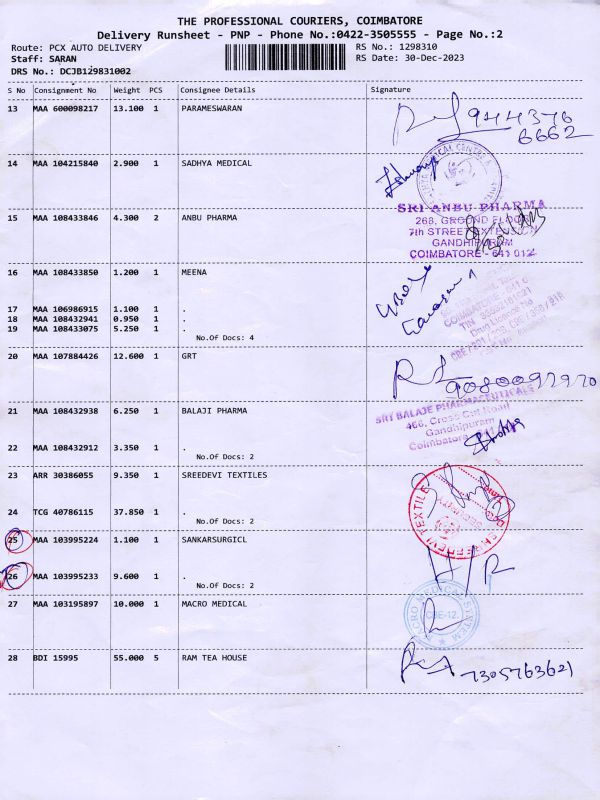 THE PROFESSIONAL COURIERS, COIMBATORE
Delivery Runsheet - PNP - Phone No.:0422-3505555 - Page No.:2
Route: PCX AUTO DELIVERY RS No.: 1298310
Staff: SARAN RS Date: 30-Dec-2023
DRS No.: DCJB129831002
S No Consignment No Weight PCS Consignee Details Signature
13 MAA 600098217 13.100 1 PARAMESWARAN
944376
6662
14 MAA 104215840 2.900 1 SADHYA MEDICAL
SRI ANBU PHARMA
15 MAA 108433846 4.300 2 ANBU PHARMA 268, GROUND FLOOR
7th STREET EXTENSION
GANDHIPURAM
COIMBATORE - 641 012
16 MAA 108433850 1.200 1 MEENA
17 MAA 106986915 1.100 1 .
18 MAA 108432941 0.950 1 .
19 MAA 108433075 5.250 1 .
No.Of Docs: 4
20 MAA 107884426 12.600 1 GRT
9080092970
SRI BALAJE PHARMACEUTICALS
21 MAA 108432938 6.250 1 BALAJI PHARMA 466, Cross Cut Road
Gandhipuram
Coimbatore - 641
22 MAA 108432912 3.350 1 .
No.Of Docs: 2
23 ARR 30386055 9.350 1 SREEDEVI TEXTILES
24 TCG 40786115 37.850 1 .
No.Of Docs: 2
SHREEDEVI TEXTILE
25 MAA 103995224 1.100 1 SANKARSURGICL
26 MAA 103995233 9.600 1 .
No.Of Docs: 2
27 MAA 103195897 10.000 1 MACRO MEDICAL
MACRO MEDICAL SYSTEM
CBE-12.
28 BDI 15995 55.000 5 RAM TEA HOUSE
7305763621